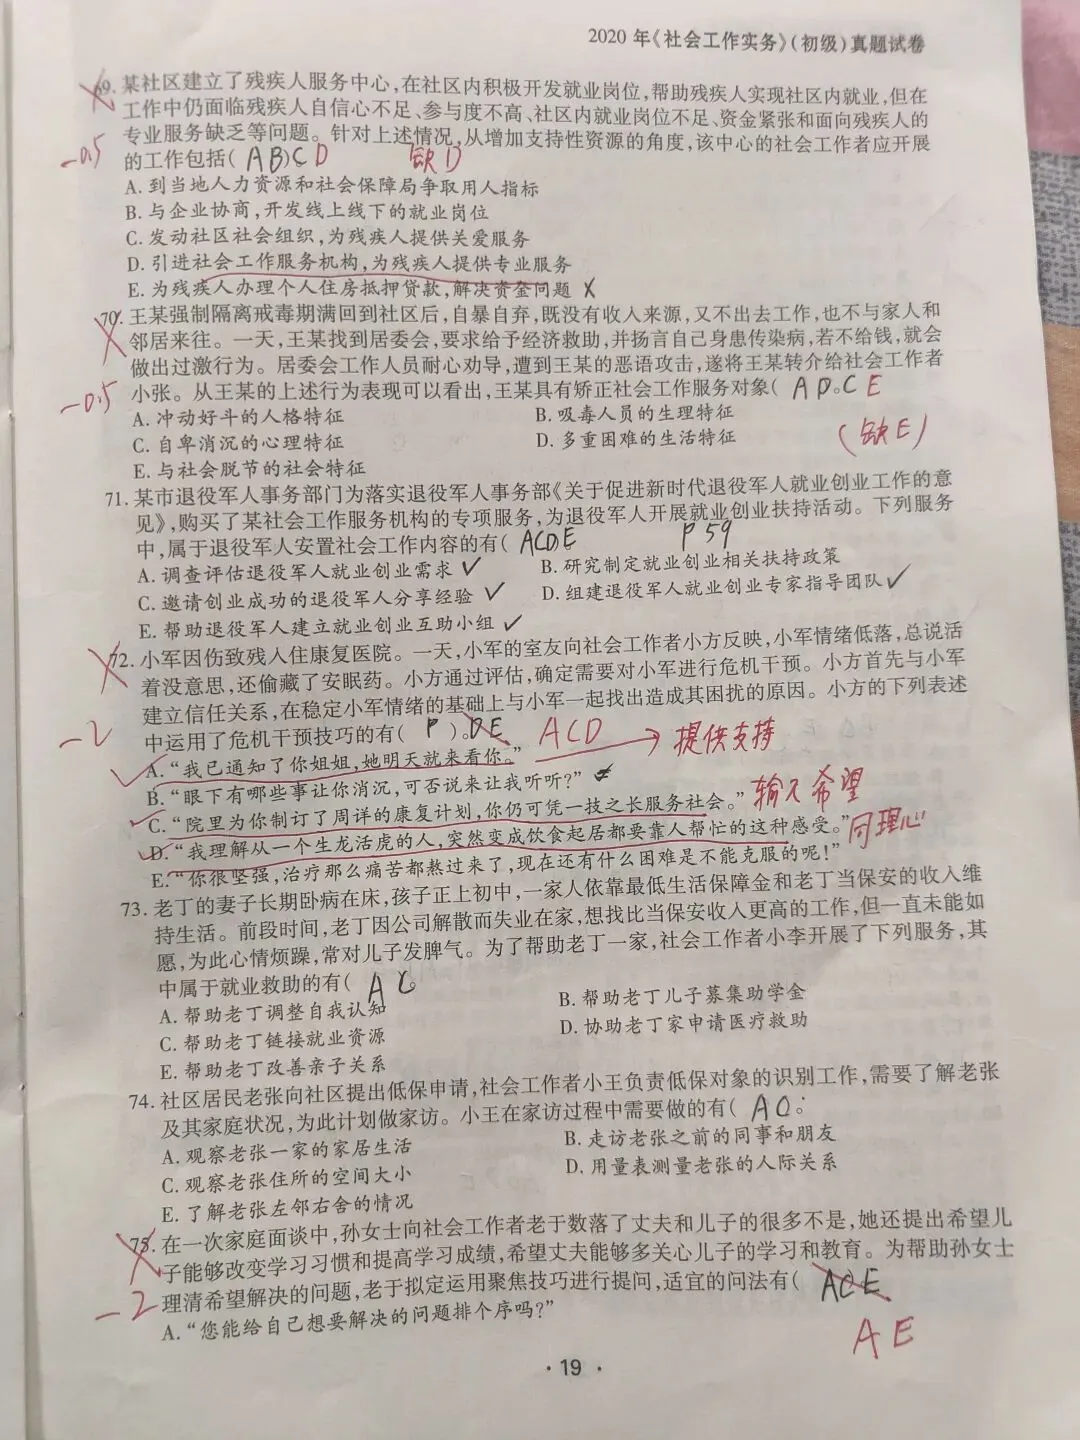 2020 年《社会工作实务》(初级)真题试卷
69. 某社区建立了残疾人服务中心,在社区内积极开发就业岗位,帮助残疾人实现社区内就业,但在
工作中仍面临残疾人自信心不足、参与度不高、社区内就业岗位不足、资金紧张和面向残疾人的
专业服务缺乏等问题。针对上述情况,从增加支持性资源的角度,该中心的社会工作者应开展
-0.5 的工作包括( AB)CD 缺D
A. 到当地人力资源和社会保障局争取用人指标
B. 与企业协商,开发线上线下的就业岗位
C. 发动社区社会组织,为残疾人提供关爱服务
D. 引进社会工作服务机构,为残疾人提供专业服务
E. 为残疾人办理个人住房抵押贷款,解决资金问题 X
70. 王某强制隔离戒毒期满回到社区后,自暴自弃,既没有收入来源,又不出去工作,也不与家人和
邻居来往。一天,王某找到居委会,要求给予经济救助,并扬言自己身患传染病,若不给钱,就会
做出过激行为。居委会工作人员耐心劝导,遭到王某的恶语攻击,遂将王某转介给社会工作者
-0.5 小张。从王某的上述行为表现可以看出,王某具有矫正社会工作服务对象( AD。C E
A. 冲动好斗的人格特征 B. 吸毒人员的生理特征
C. 自卑消沉的心理特征 D. 多重困难的生活特征 (缺E)
E. 与社会脱节的社会特征
71. 某市退役军人事务部门为落实退役军人事务部《关于促进新时代退役军人就业创业工作的意
见》,购买了某社会工作服务机构的专项服务,为退役军人开展就业创业扶持活动。下列服务
中,属于退役军人安置社会工作内容的有( ACD)E P59
A. 调查评估退役军人就业创业需求 ✓ B. 研究制定就业创业相关扶持政策
C. 邀请创业成功的退役军人分享经验 ✓ D. 组建退役军人就业创业专家指导团队 ✓
E. 帮助退役军人建立就业创业互助小组 ✓
72. 小军因伤致残入住康复医院。一天,小军的室友向社会工作者小方反映,小军情绪低落,总说活
着没意思,还偷藏了安眠药。小方通过评估,确定需要对小军进行危机干预。小方首先与小军
建立信任关系,在稳定小军情绪的基础上与小军一起找出造成其困扰的原因。小方的下列表述
-2 中运用了危机干预技巧的有( )。DE ACD → 提供支持
A. “我已通知了你姐姐,她明天就来看你。”
B. “眼下有哪些事让你消沉,可否说来让我听听?”
C. “院里为你制订了周详的康复计划,你仍可凭一技之长服务社会。” 输入希望
D. “我理解从一个生龙活虎的人,突然变成饮食起居都要靠人帮忙的这种感受。” 同理心
E. “你很坚强,治疗那么痛苦都熬过来了,现在还有什么困难是不能克服的呢!”
73. 老丁的妻子长期卧病在床,孩子正上初中,一家人依靠最低生活保障金和老丁当保安的收入维
持生活。前段时间,老丁因公司解散而失业在家,想找比当保安收入更高的工作,但一直未能如
愿,为此心情烦躁,常对儿子发脾气。为了帮助老丁一家,社会工作者小李开展了下列服务,其
中属于就业救助的有( AC
A. 帮助老丁调整自我认知 B. 帮助老丁儿子募集助学金
C. 帮助老丁链接就业资源 D. 协助老丁家申请医疗救助
E. 帮助老丁改善亲子关系
74. 社区居民老张向社区提出低保申请,社会工作者小王负责低保对象的识别工作,需要了解老张
及其家庭状况,为此计划做家访。小王在家访过程中需要做的有( AC 。
A. 观察老张一家的家居生活 B. 走访老张之前的同事和朋友
C. 观察老张住所的空间大小 D. 用量表测量老张的人际关系
E. 了解老张左邻右舍的情况
75. 在一次家庭面谈中,孙女士向社会工作者老于数落了丈夫和儿子的很多不是,她还提出希望儿
子能够改变学习习惯和提高学习成绩,希望丈夫能够多关心儿子的学习和教育。为帮助孙女士
-2 理清希望解决的问题,老于拟定运用聚焦技巧进行提问,适宜的问法有( ACE
A. “您能给自己想要解决的问题排个序吗?” AE
· 19 ·